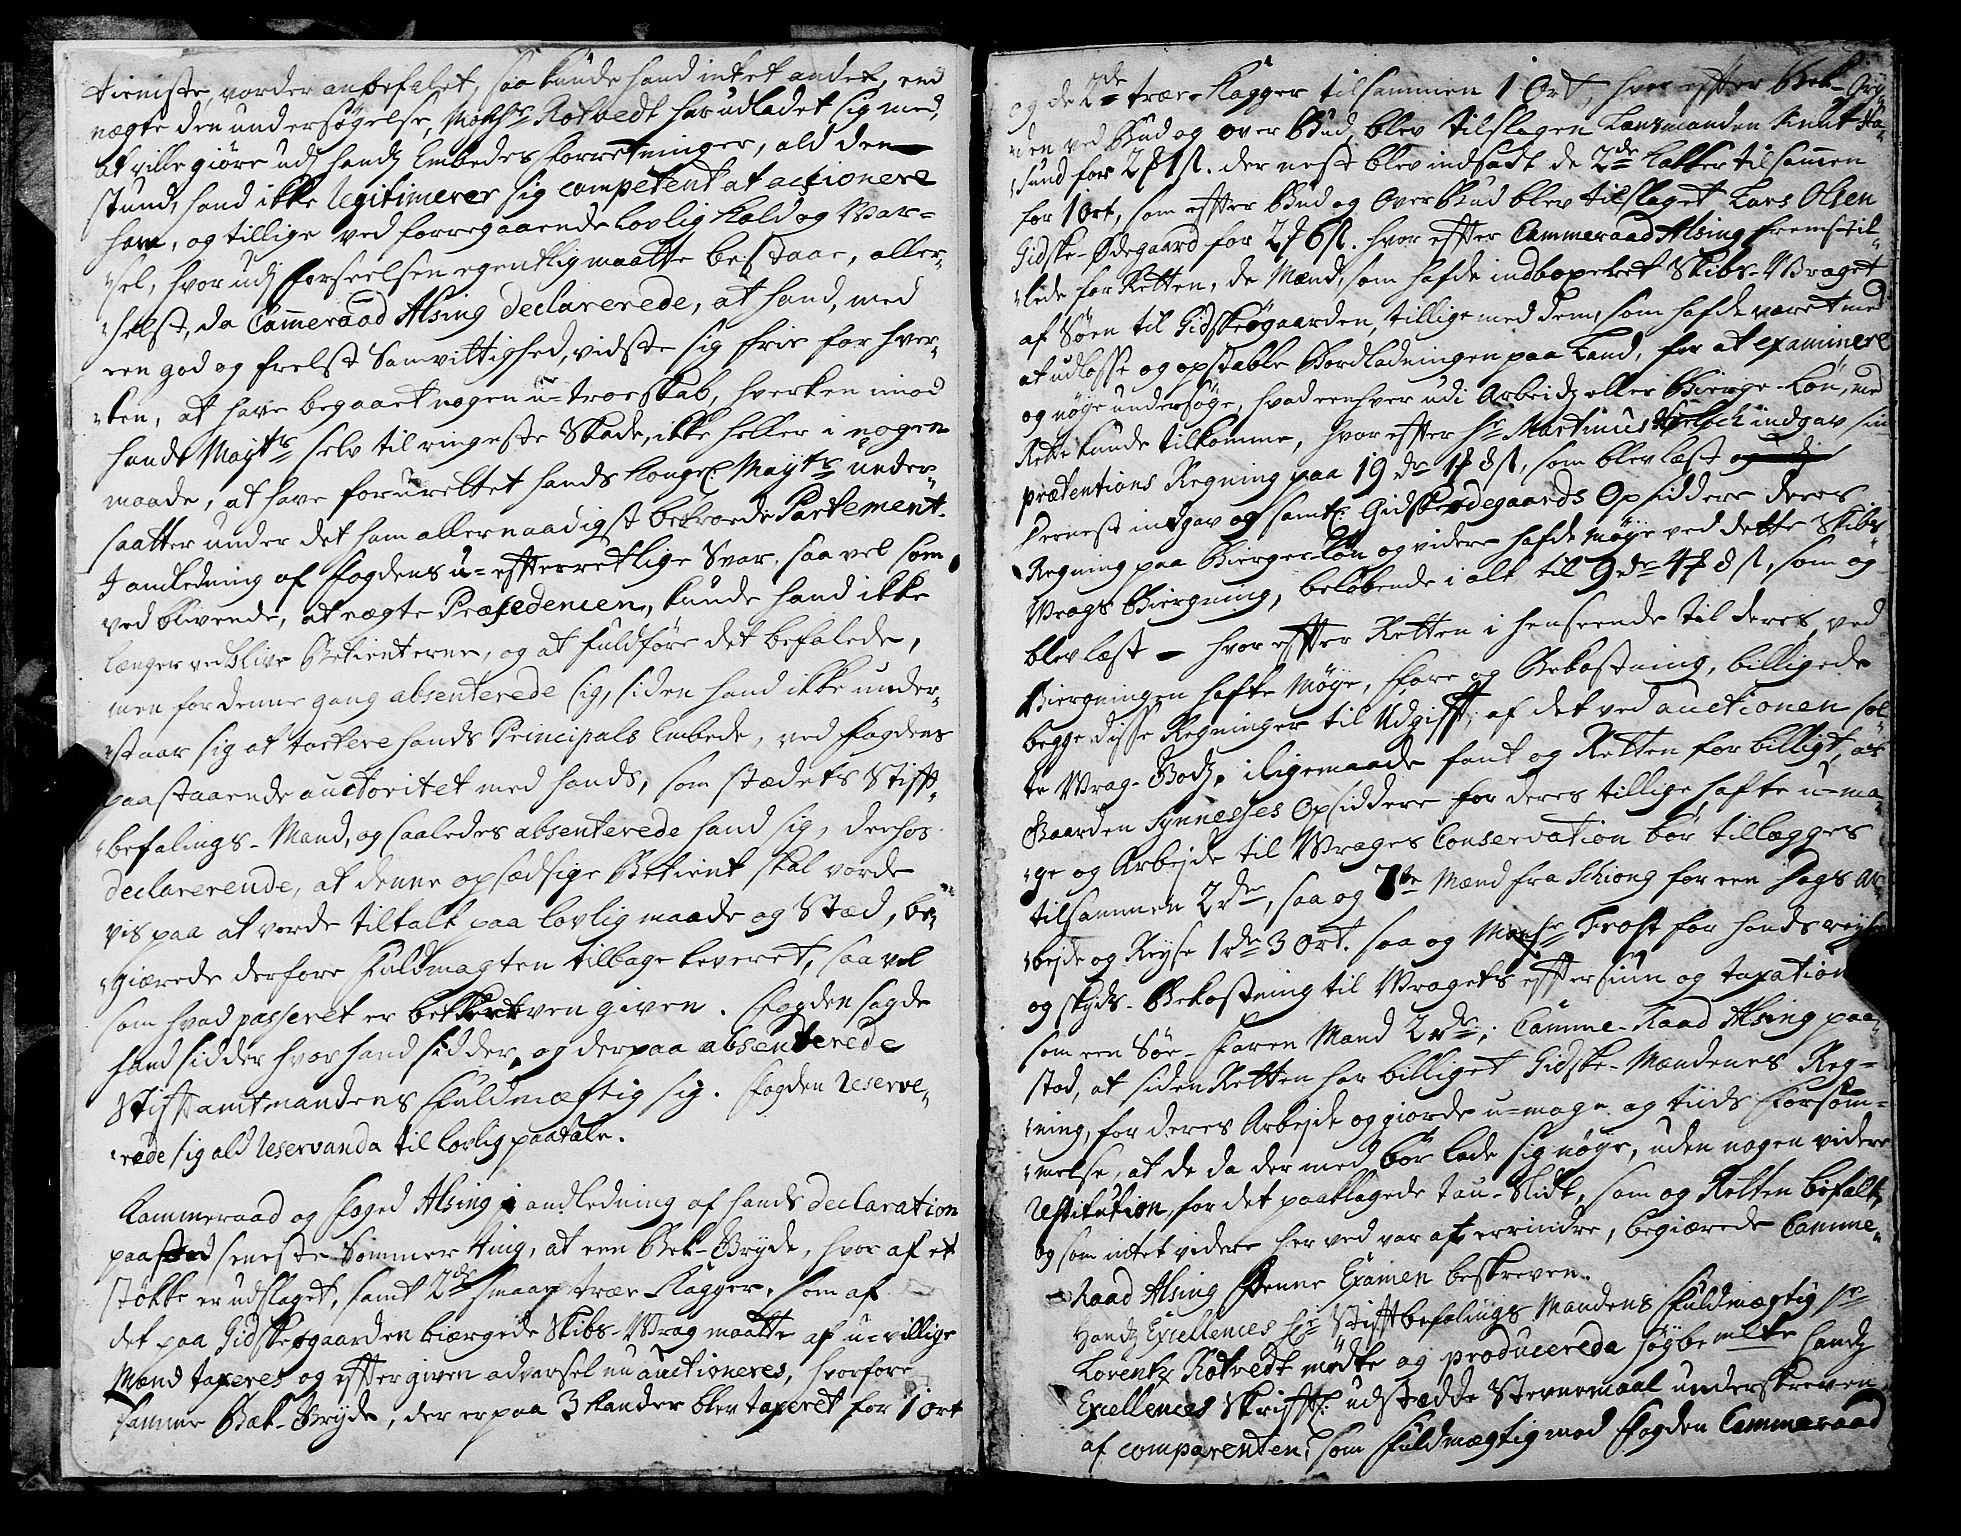 tieniste, vorder anbefalet, saa kunde hand intet andet, end
nægte den undersøgelse, Monsr Rotvedt har udladet sig med,
at ville giøre udj handz Embedes forretninger, ald den
stund, hand ikke legitimerer sig competent at actionere
ham, og tillige ved forregaaende lovlig Kald og Var-
sel, hvor udj forseelsen egentlig maatte bestaae, aller-
helst, da Cammeraad Alsing declarerede, at hand, med
een god og frelst Samvittighed, vidste sig frie for hver-
ken, at have begaaet nogen u-troeskab, hverken imod
hands Maytz selv til ringeste Skade, ikke heller i nogen
maade, at have forurettet hands Kongl Maytz under-
saatter under det ham allernaadigst betroede Partement.
I anledning af fogdens u-efterretlige Svar, saavel som
ved blivende, at nægte Præsedencen, kunde hand ikke
længer ved blive Betienterne, og at fuldføre det befalede,
men for denne gang absenterede sig, siden hand ikke under-
staar sig at tortere hands Principals Embede, ved fogdens
paastaaende auctoritet med hands, som stædets Stifft-
befalings-Mand, og saaledes absenterede hand sig, derhos
declarerende, at denne opsædsige Betient skal vorde
vis paa at vorde tiltalt paa lovlig maade og Stæd, be-
giærede derfore fuldmagten tilbage leveret, saavel
som hvad passeret er beskreven given. Fogden sagde
hand sidder hvor hand sidder, og derpaa absenterede
Stifftamtmandens fuldmægtig sig. Fogden reserve-
rede sig ald reservanda til lovlig paatale.
Kammeraad og foged Alsing i andledning af hands declaration
paa seneste Sommer Ting, at een Bek-Bryde, hvor af et
støkke er udslaget, samt 2de smaae træe Kagger, som af
det paa Gidskeøgaarden biærgede Skibs-Vrag maatte af u-villige
Mænd taxeres og effter given advarsel nu auctioneres, hvorfore
samme Bæk-Bryde, der er paa 3 Kander blev taxeret for 1 ort
og de 2de træe Kagger tilsammen 1 Ort, hvor effter Bek-Bry-
den ved Bud og over Bud, blev tilslagen Lænsmanden Knut Ha-
sund for 2 ß. der nest blev indsadt de 2de Kakker tilsamen
for 1 ort, som effter Bud og Over Bud blev tilslaget Lars Olsen
Gidske-Ødegaard for 2 6 ß. hvor effter Cammeraad Alsing fremstil-
lede for Retten, de Mænd, som hafde indboxeret Skibs-Vraget
af Søen til Gidskeøgaarden, tillige med dem, som hafde været med
at udlosse og opstable Bordladningen paa Land, for at examinere
og nøye undersøge, hvad eenhver udi Arbeidz eller Bierge-Løn, med
Rette kunde tilkomme, hvor effter Sr Martinus indgav sin
prætentions Regning paa 19 dr 1 8 ß, som blev læst
Dernest indgav og samtl Gidskeødegaards Opsiddere deres
Regning paa Bierger Løn og videre hafde Møye ved dette Skibs
Vrags Biergning, beløbende i alt til 9 dr 4 8 ß, som og
blev læst - hvor effter Retten i henseende til deres, ved
Biergningen hafte Møye, fore og Bekostning, billigede
begge disse Regninger til Udgifft, af det ved auctionen sol-
te Vrag-Godz, iligemaade fant og Retten for billigt, at
Gaarden Synnesses Opsiddere for deres tillige hafte u-ma-
ge og Arbejde til Vragets Conservation bør tillægges
tilsammen 2 dr, saa og 7te Mænd fra Schiong for een Dags Ar-
bejde og Reyse 1 dr 3 ort. saa og Monsr Frost for hands reyse
og skyds-Bekostning til Vragets effter siun og taxation
som een Søe-faren Mand 2 dr; Camme-Raad Alsing paa-
stod, at siden Retten har billiget Gidske-Mændenes Reg-
ning, for deres Arbejde og giorde u-mage og tiids forsøm-
melse, at de da der med bør lade sig nøye, uden nogen videre
restitution, for det paaklagede tau-Slidt, som og Retten bifaldt,
og som intet videre her ved var at errindre, begiærede Camme-
Raad Alsing denne Examen beskreven.
Handz Excellences Hr Stifftbefalings Mandens fuldmægtig Sr
Lorentz Rotvedt mødte og producerede høybemelte handz
Excellences Skrifftl: udstædde Stevnemaal underskreven
af comparenten, som fuldmægtig mod fogden Cammeraad